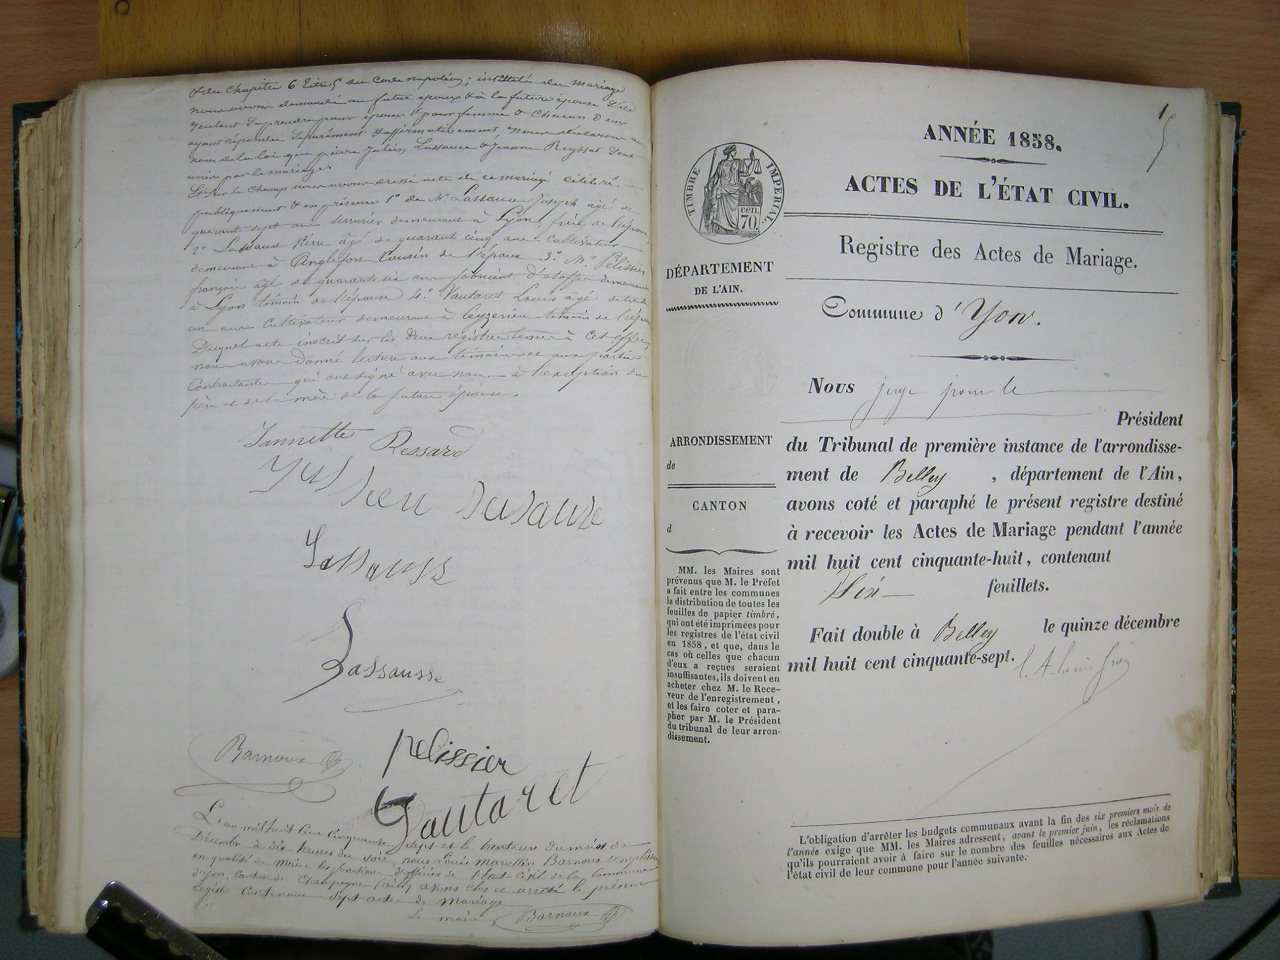 du Chapitre 6 titre 5 du code napoléon, intitulé du Mariage
nous avons demandé au futur époux & à la future épouse s'ils
veulent se prendre pour époux & pour femme & Chacun d'eux
ayant répondu séparément & affirmativement, nous déclarons au
nom de la loi que pierre Julien Lassausse & Jeanne Reyssat sont
unis par le mariage.
Et sur le champ nous avons dressé acte de ce mariage célébré
publiquement & en présence 1° de Mr Lassausse Joseph âgé de
quarante sept ans demeurant à Lyon, frère de l'époux
2° Lassausse âgé de quarante cinq ans Cultivateur
demeurant à Anglefort Cousin de l'époux 3° Mr Pélissier
françois âgé de quarante six ans d'étoffes demeurant
à Lyon témoin de l'épouse 4° Vautaret Louis âgé de
un ans Cultivateur demeurant à témoin de
Duquel acte inscrit sur les deux registres tenus à cet effet,
nous avons donné lecture aux témoins et aux parties
Contractantes qui ont signé avec nous à l'exception du
père et de la mère de la future épouse.
Jannette Ressard
Lassauss
Lassausse
pelissier
Barnoux
Vautaret
L'an mil huit Cent Cinquante sept et le trente un du mois de
Décembre à dix heures du soir, nous Louis Barnoux
en qualité de Maire les fonctions d'officier de l'Etat Civil de la Commune
d'yon, Canton de Champagne (ain) avons clos et arrêté le présent
registre Contenant Sept actes de Mariage
Le maire, Barnoux
1
ANNÉE 1858.
ACTES DE L'ÉTAT CIVIL.
Registre des Actes de Mariage.
TIMBRE IMPÉRIAL
70 cen.
DÉPARTEMENT
DE L'AIN.
Commune d'Yon.
Nous juge pour le
Président
du Tribunal de première instance de l'arrondisse-
ment de Belley, département de l'Ain,
avons coté et paraphé le présent registre destiné
à recevoir les Actes de Mariage pendant l'année
mil huit cent cinquante-huit, contenant
feuillets.
Fait double à Belley le quinze décembre
mil huit cent cinquante-sept.
ARRONDISSEMENT
de
CANTON
d
MM. les Maires sont
prévenus que M. le Préfet
a fait entre les communes
la distribution de toutes les
feuilles de papier timbré,
qui ont été imprimées pour
les registres de l'état civil
en 1858, et que, dans le
cas où celles que chacun
d'eux a reçues seraient
insuffisantes, ils doivent en
acheter chez M. le Rece-
veur de l'enregistrement,
et les faire coter et para-
pher par M. le Président
du tribunal de leur arron-
dissement.
L'obligation d'arrêter les budgets communaux avant la fin des six premiers mois de
l'année exige que MM. les Maires adressent, avant le premier juin, les réclamations
qu'ils pourraient avoir à faire sur le nombre des feuilles nécessaires aux Actes de
l'état civil de leur commune pour l'année suivante.